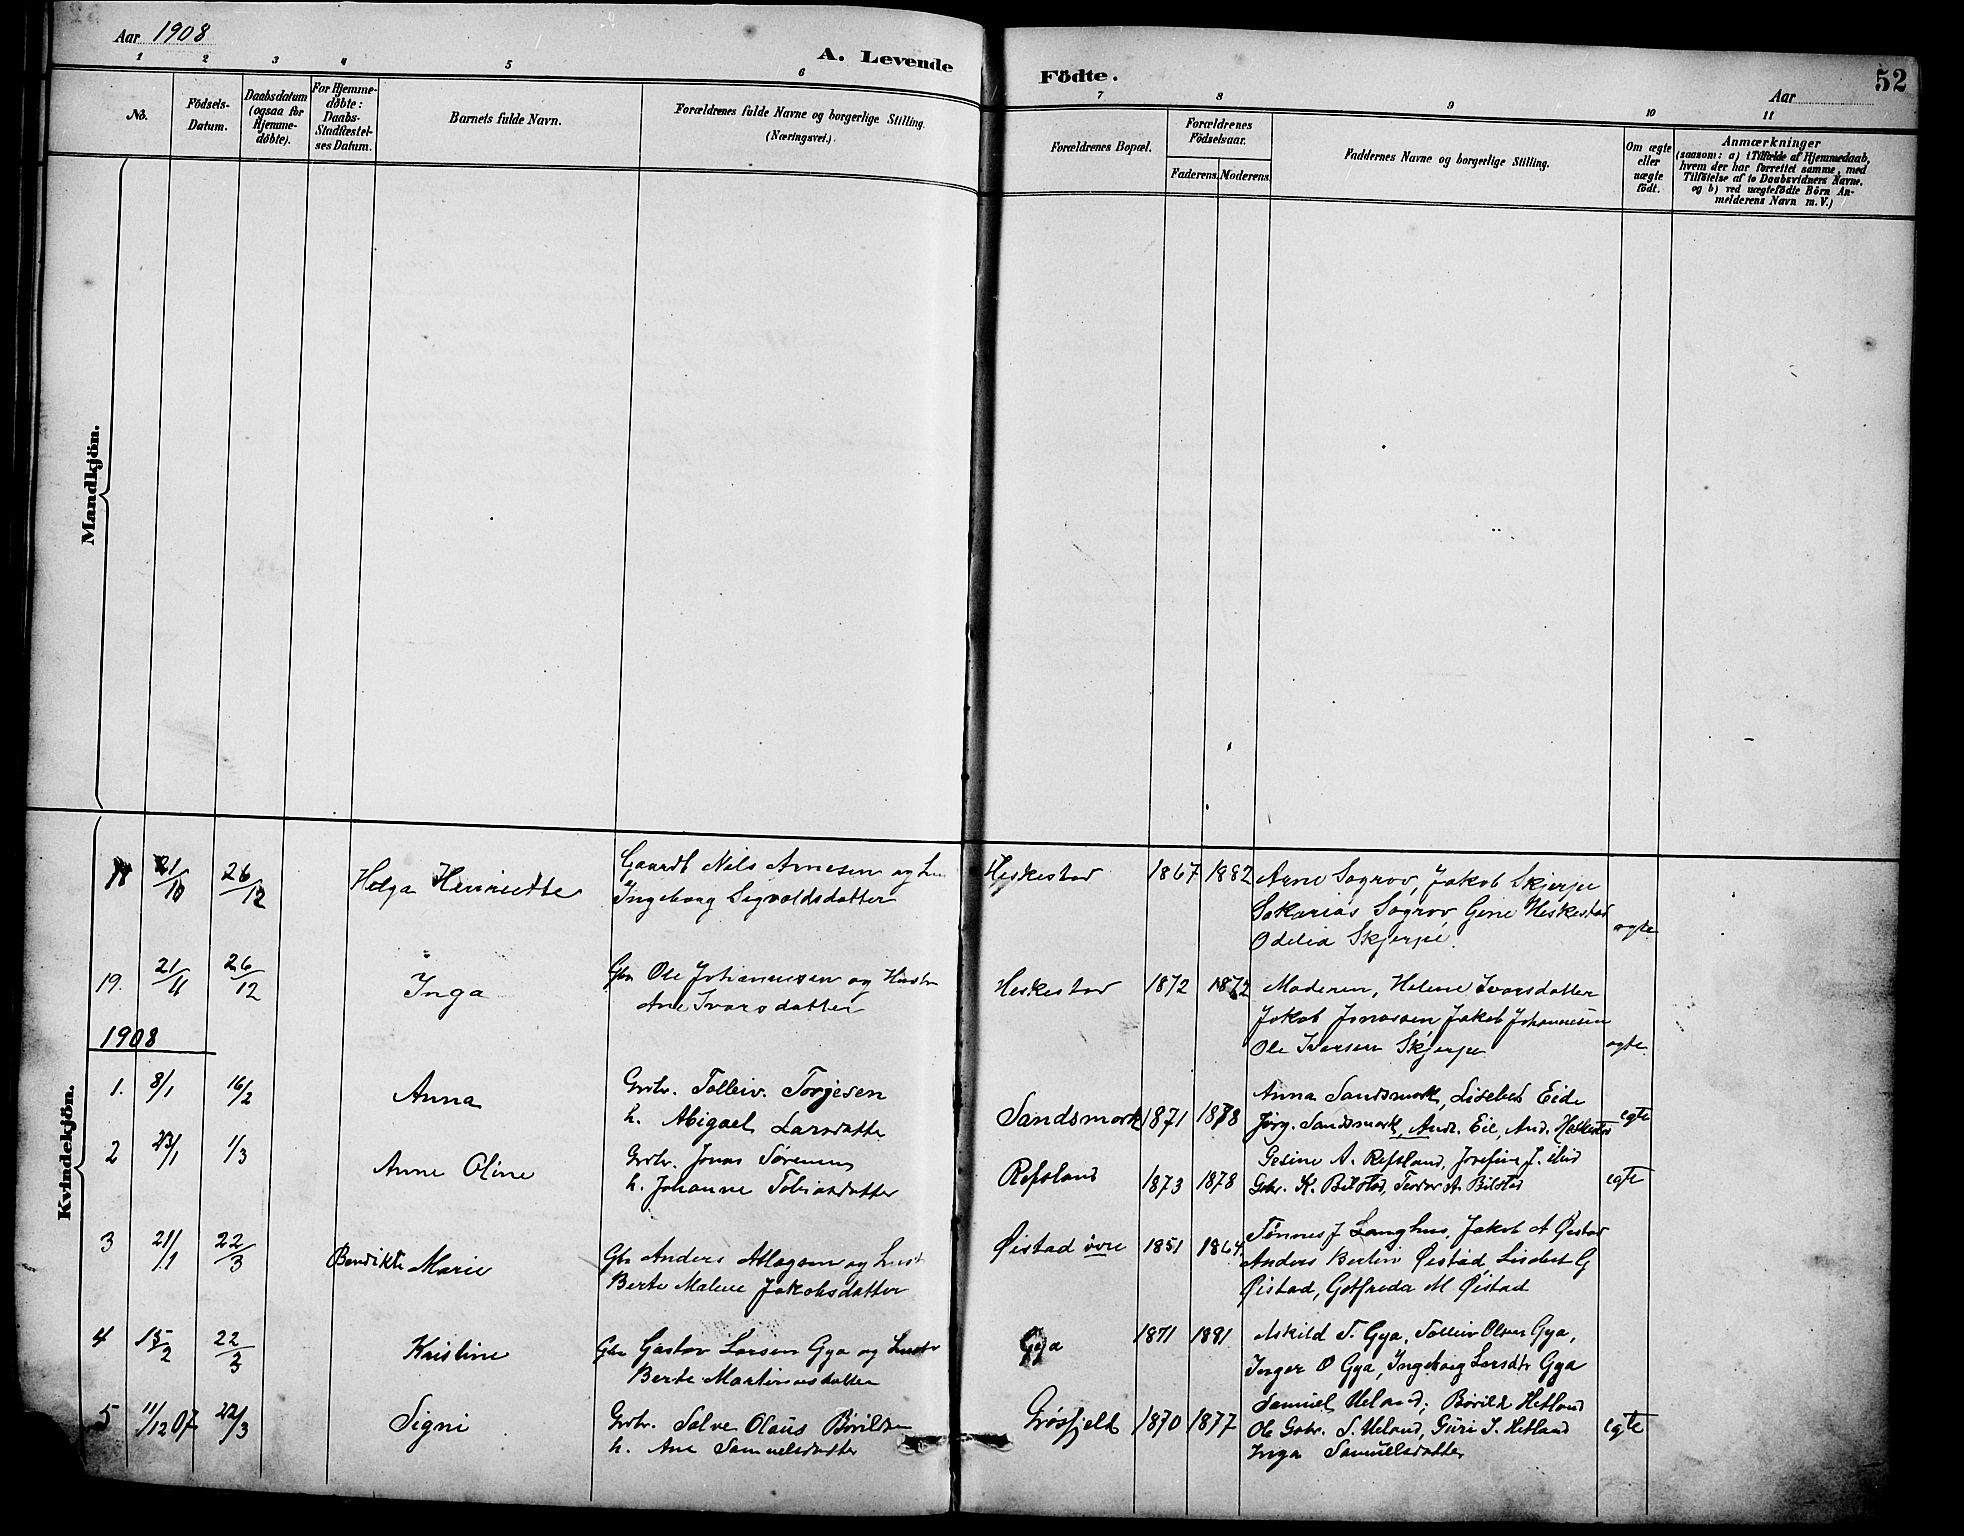 Aar 1908
A. Levende Födte.
52
Aar
1 2 3 4 5 6 7 8 9 10 11
No.
Födsels-Datum.
Daabsdatum (ogsaa for Hjemme-døbte).
For Hjemme-døbte: Daabs-Stadfæstel-ses Datum.
Barnets fulde Navn.
Forældrenes fulde Navne og borgerlige Stilling.
(Næringsvei.)
Forældrenes Bopæl.
Forældrenes Födselsaar.
Faderens. Moderens.
Faddernes Navne og borgerlige Stilling.
Om ægte eller uægte født.
Anmærkninger
(saasom: a) i Tilfælde af Hjemmedaab,
hvem der har forrettet samme, med
Tilföielse af to Daabsvidners Navne,
og b) ved uægtefödte Börn An-
melderens Navn m. V.)
Mandkjön.
Kvindekjön.
21/10 26/12 Helga Henriette Gaardb Nils Arnesen og
Ingeborg Sigvaldsdatter
Heskestad 1867 1882 Arne Sogrov, Jakob Skjerpe
Sakarias Sogrov, Gine Heskestad
Odelia Skjerpe. ægte
19. 21/11 26/12 Inga Gbr Ole Johannesen og Hustr
Ane Ivarsdatter
Heskestad 1872 1872 Moderen, Helene Ivarsdatter
Jakob Jonassen Jakob Johannesen
Ole Iversen Skjerpe ægte.
1908
1. 8/1 16/2 Anna Grbr. Tolleiv Torgesen
h. Abigael Larsdatter
Sandsmark 1871 1878 Anna Sandsmark, Lisebet Eide
Jörg. Sandsmark, Andr. Eie, And. Heskestad egte
2 23/1 1/3 Anne Oline Grbr. Jonas Sörensen
h. Johanne Tobiasdatter
Refsland 1873 1878 Gesine A. Refsland, Josefine J.
Gbr. K. Bilstad, Teodor A. Bilstad egte
3 21/1 22/3 Bendikte Marie Gbr Anders Aslagsen og Hust
Berte Malene Jakobsdatter
Øistad övre 1851 1864. Tönnes J Langhus, Jakob A Øistad
Anders Bertin Øistad, Lisebet G
Øistad, Gotfreda M Øistad
4 15/2 22/3 Kristine Gbr Gustav Larsen Gya og Hustr
Berte Martinusdatter
Gya 1871 1881 Askild T. Gya, Tolleiv Olsen Gya,
Inger O Gya, Ingeborg Larsdtr Gya
5 11/12 07 22/3 Signi Grbr. Salve Olaus Börildsen
h. Ane Samuelsdatter
Grösfjeld 1870 1877 Samuel Ueland, Börild Hetland
Ole Gabr. S. Ueland, Guri S. Hetland
Inga Samuelsdatter egte